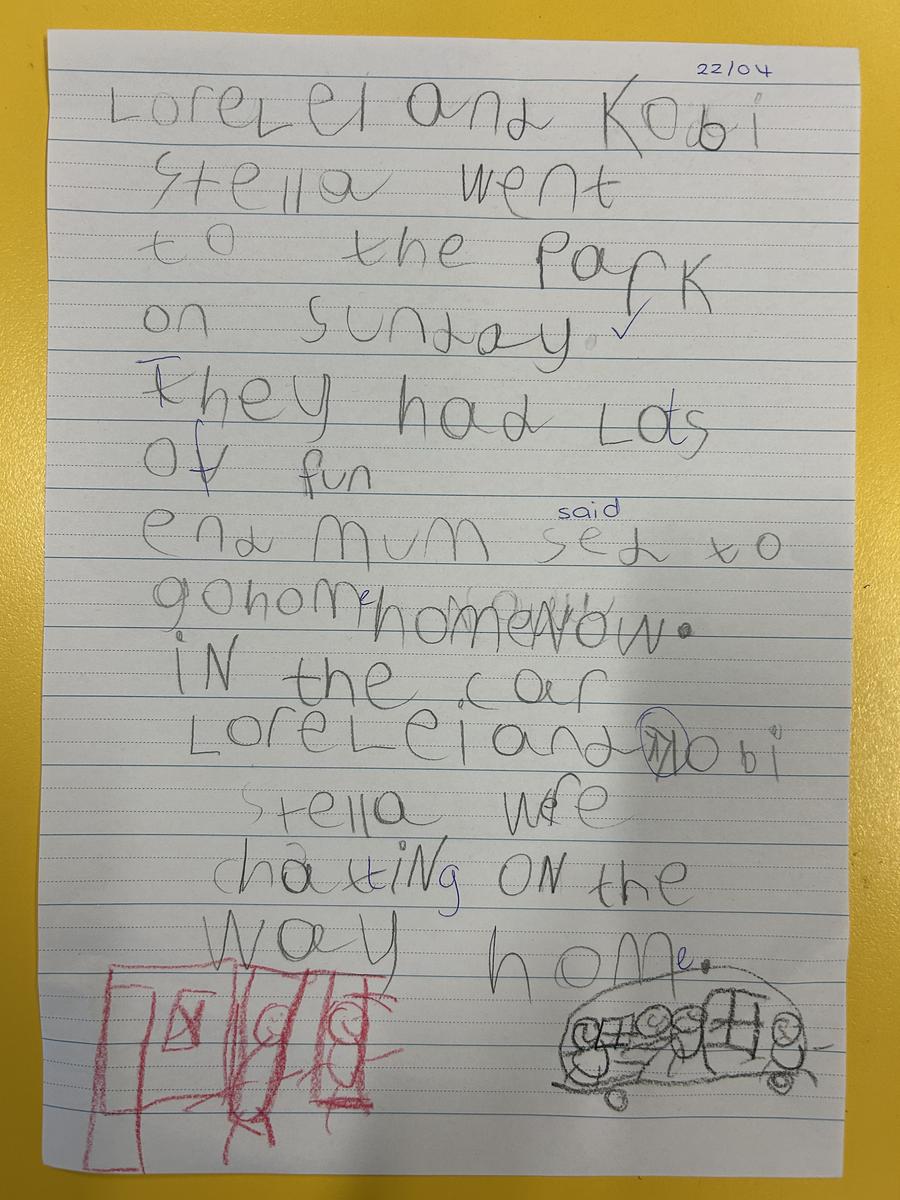 22/04
LoreLei and Kobi
Stella went
to the Park
on Sunday. ✓
They had Lots
of fun
said
end Mum sed to
gohome homeNow.
iN the car
LoreLei and Kobi
Stella were
chatiNg ON the
way home.